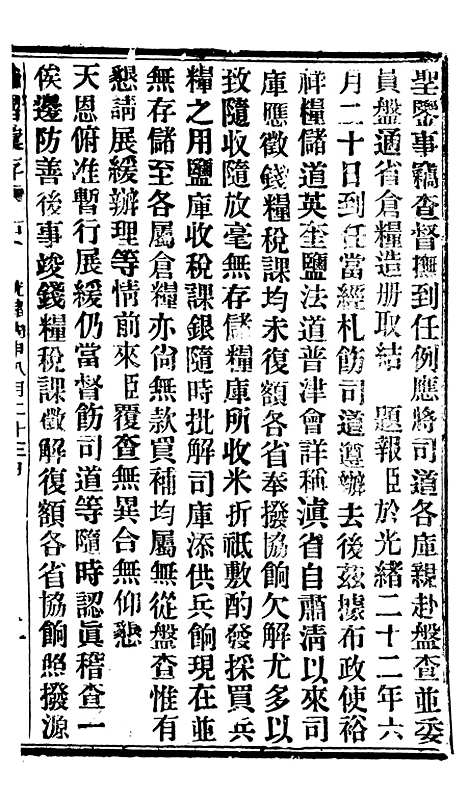 聖鑒事竊查督撫到任例應將司道各庫親赴盤查並委
員盤通省倉糧造册取結 題報臣於光緒二十二年六
月二十日到任當經札飭司道遵辦去後茲據布政使裕
祥糧儲道英奎鹽法道普津會詳稱滇省自肅清以來司
庫應徵錢糧稅課均未復額各省奉撥協餉欠解尤多以
致隨收隨放毫無存儲糧庫所收米折祇敷酌發採買兵
糧之用鹽庫收稅課銀隨時批解司庫添供兵餉現在並
無存儲至各屬倉糧亦尙無款買補均屬無從盤查惟有
懇請展緩辦理等情前來臣覆查無異合無仰懇
天恩俯准暫行展緩仍當督飭司道等隨時認眞稽查一
俟邊防善後事竣錢糧稅課徵解復額各省協餉照撥源
光緒丙申八月二十三日